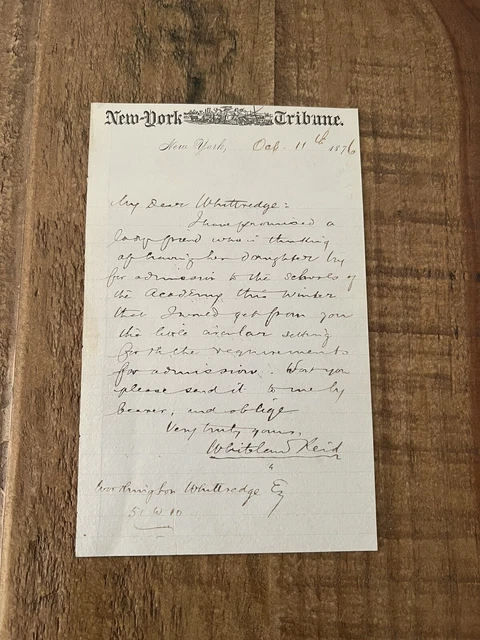 New-York Tribune.
New York, Oct. 11th 1876
My Dear Whittredge:
I have promised a
lady friend who is thinking
of having her daughter try
for admission to the schools of
the Academy this winter
that I would get from you
the circular setting
forth the requirements
for admission. Won't you
please send it to me by
bearer, and oblige
Very truly yours,
Whitelaw Reid
Worthington Whittredge Esq
51 W 10